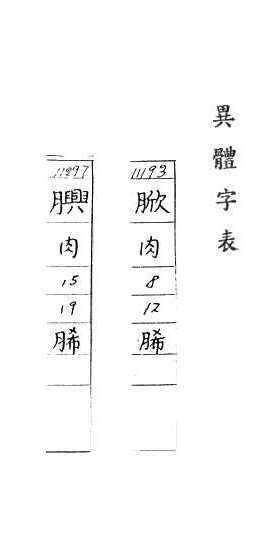 異體字表
11193
脪
肉
8
12
脪
11297
肉
15
19
脪